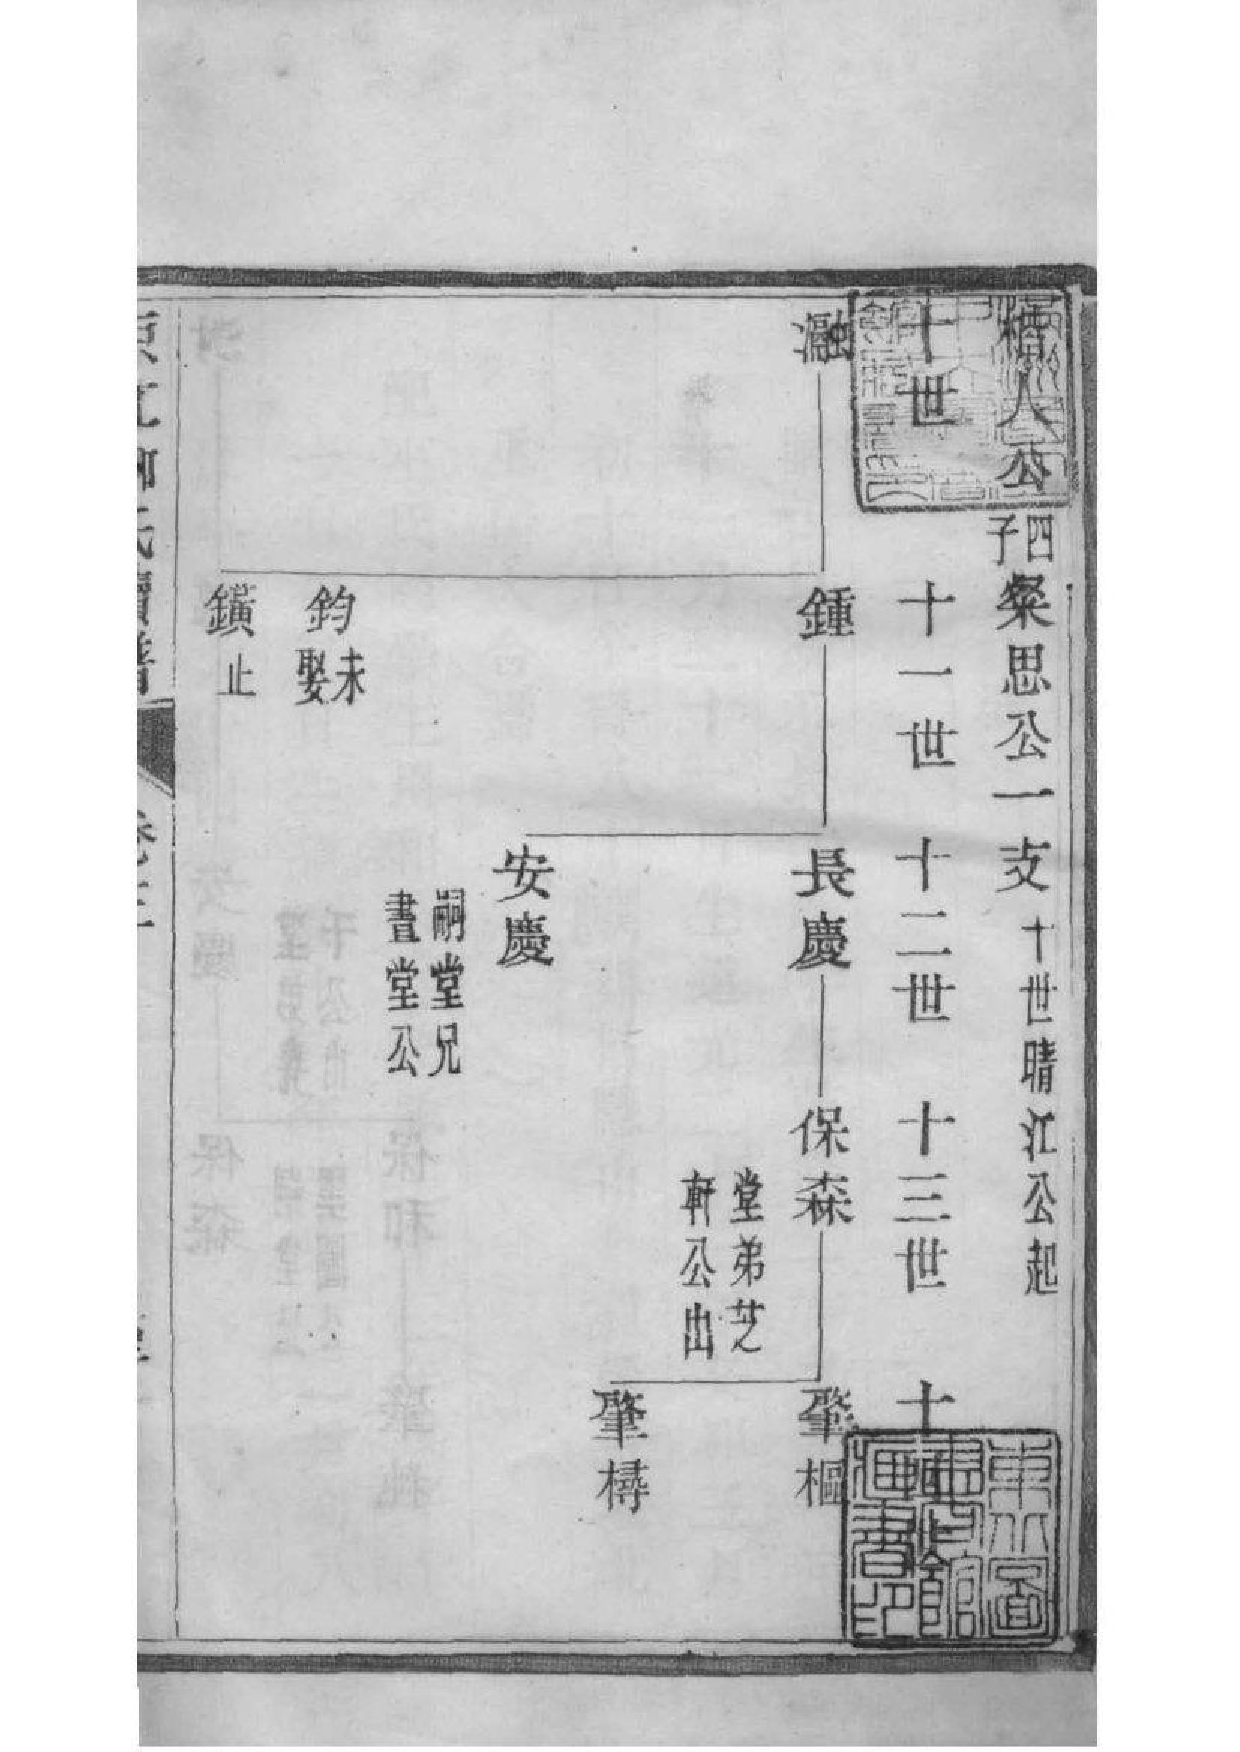 槽人公四子粲思公一支十世晴江公起
十世 十一世 十二世 十三世 十
瀜 鍾 長慶 保森 肇樞
堂弟芝
軒公出
肇樳
安慶
嗣堂兄
晝堂公
鈞未娶
鑛止
氏續譜
卷三